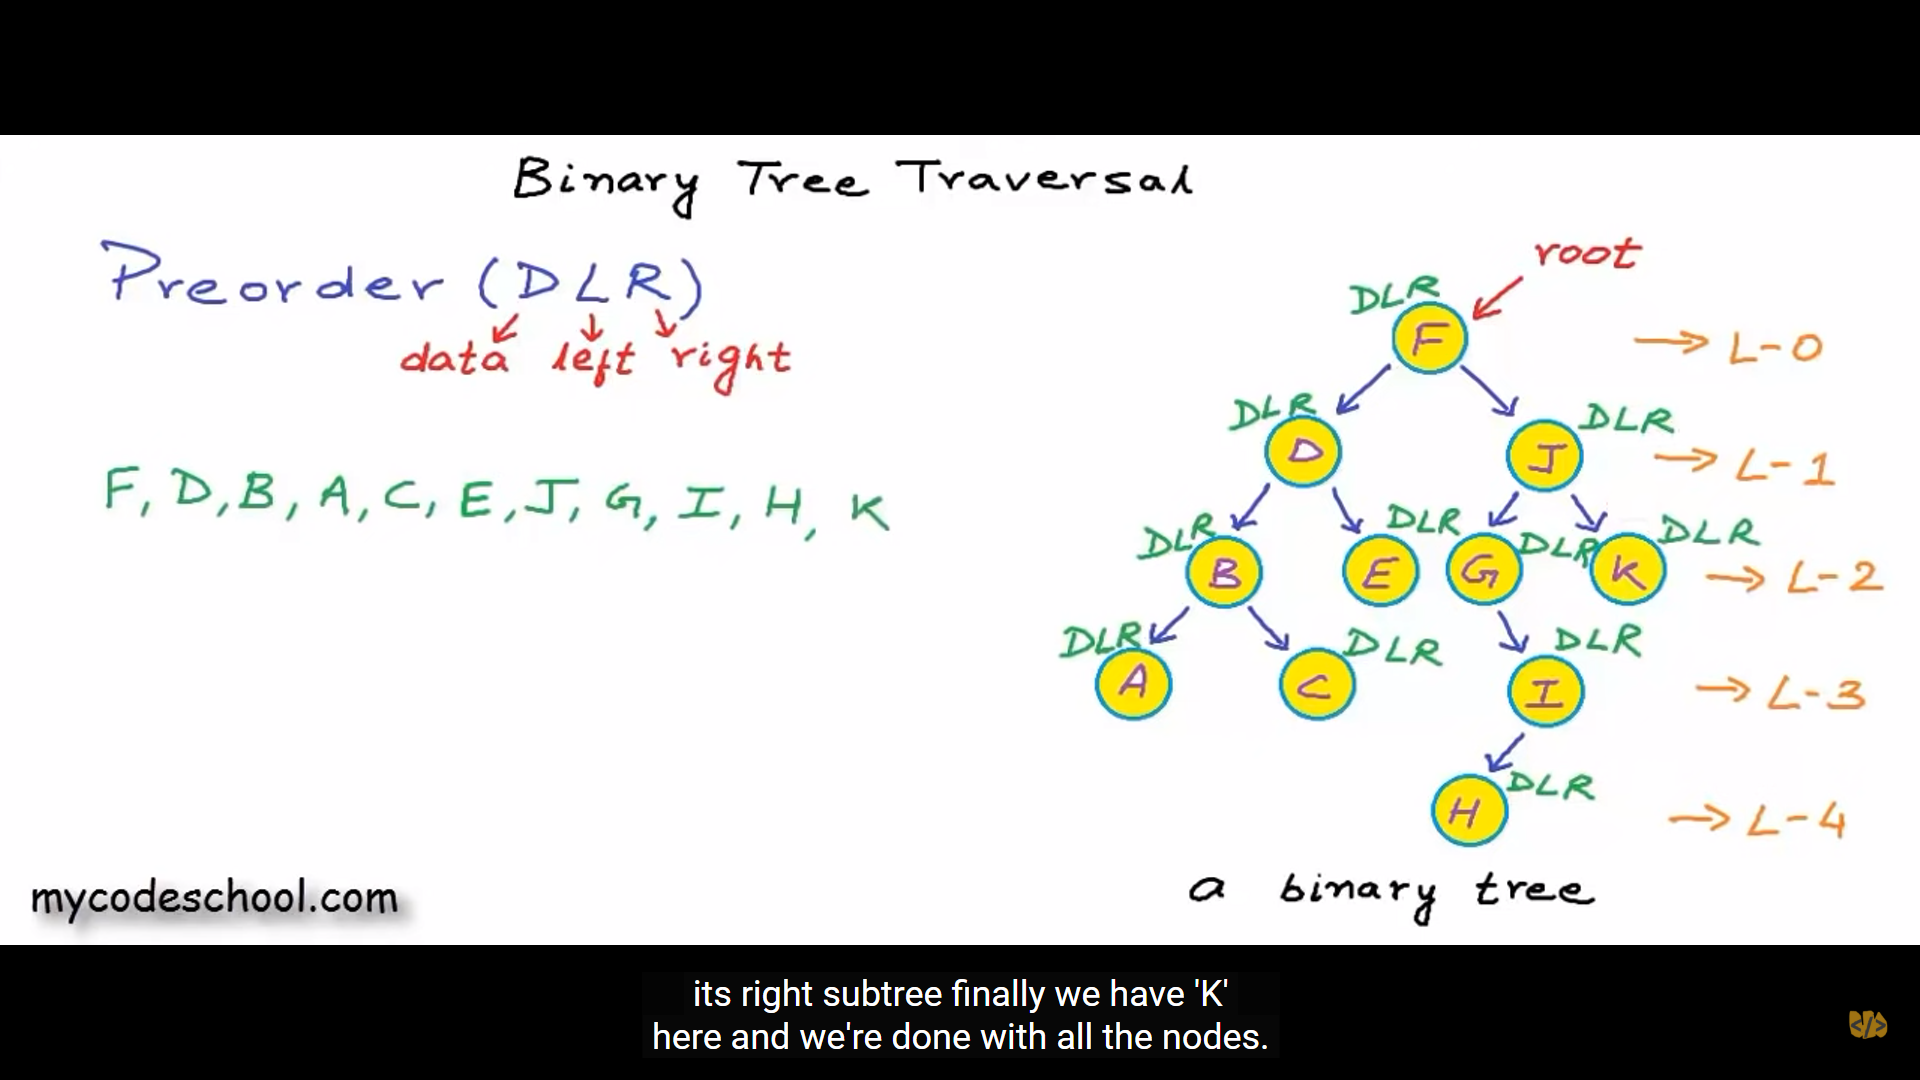 Binary Tree Traversal
Preorder (DLR)
data left right
F, D, B, A, C, E, J, G, I, H, K
root
DLR
F
→ L-0
DLR
DLR
D
J
→ L-1
DLR
DLR
DLR
DLR
B
E
G
K
→ L-2
DLR
DLR
DLR
A
C
I
→ L-3
DLR
H
→ L-4
a binary tree
mycodeschool.com
its right subtree finally we have 'K'
here and we're done with all the nodes.